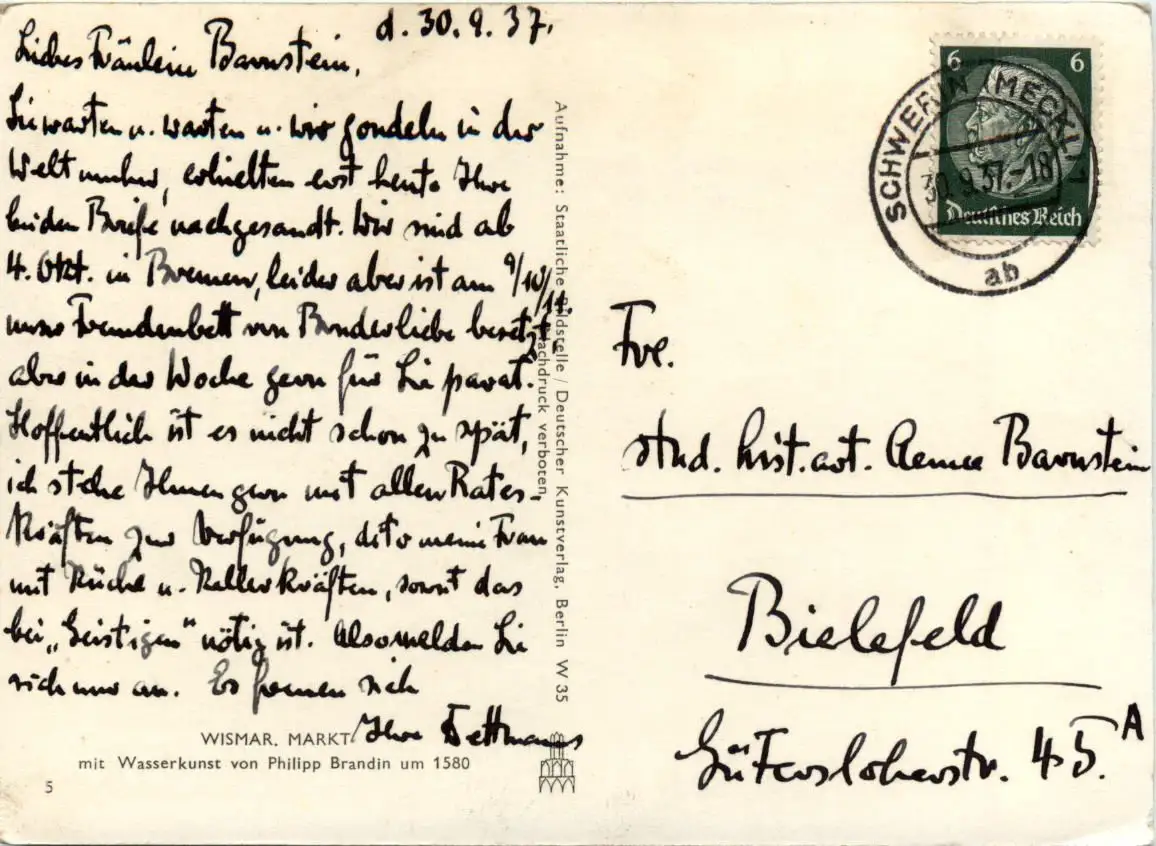 d. 30.9.37.
Liebes Fräulein Barnstein,
Sie warten u. warten u. wir gondeln in der
Welt umher, erhielten erst heute Ihre
beiden Briefe nachgesandt. Wir sind ab
4. Okt. in Bremen, leider aber ist am 9/10/11.
unser Fremdenbett von Bruderliebe besetzt,
aber in der Woche gern für Sie parat.
Hoffentlich ist es nicht schon zu spät,
ich stehe Ihnen gern mit allen Rates-
kräften zur Verfügung, dito meine Frau
mit Küche u. Kellerkräften, soweit das
bei „Geistigen“ nötig ist. Also melden Sie
sich nur an. Es freuen sich
Ihre Dettmanns
WISMAR. MARKT
mit Wasserkunst von Philipp Brandin um 1580
5
Aufnahme: Staatliche Bildstelle / Deutscher Kunstverlag, Berlin W 35
Nachdruck verboten
6 6
Deutsches Reich
SCHWERIN (MECKL) 1
30.9.37.-18
ab
Frl.
stud. hist. art. Aenne Barnstein
Bielefeld
Gütersloherstr. 45.A